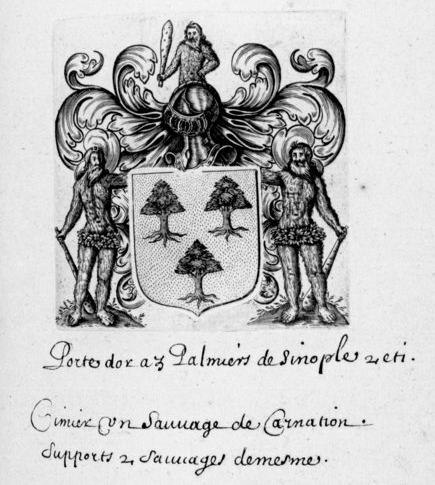 Porte dor a 3 Palmiers de Sinople 2 et i.
Cimier Un Sauuage de Carnation.
Supports 2 Sauuages demesme.